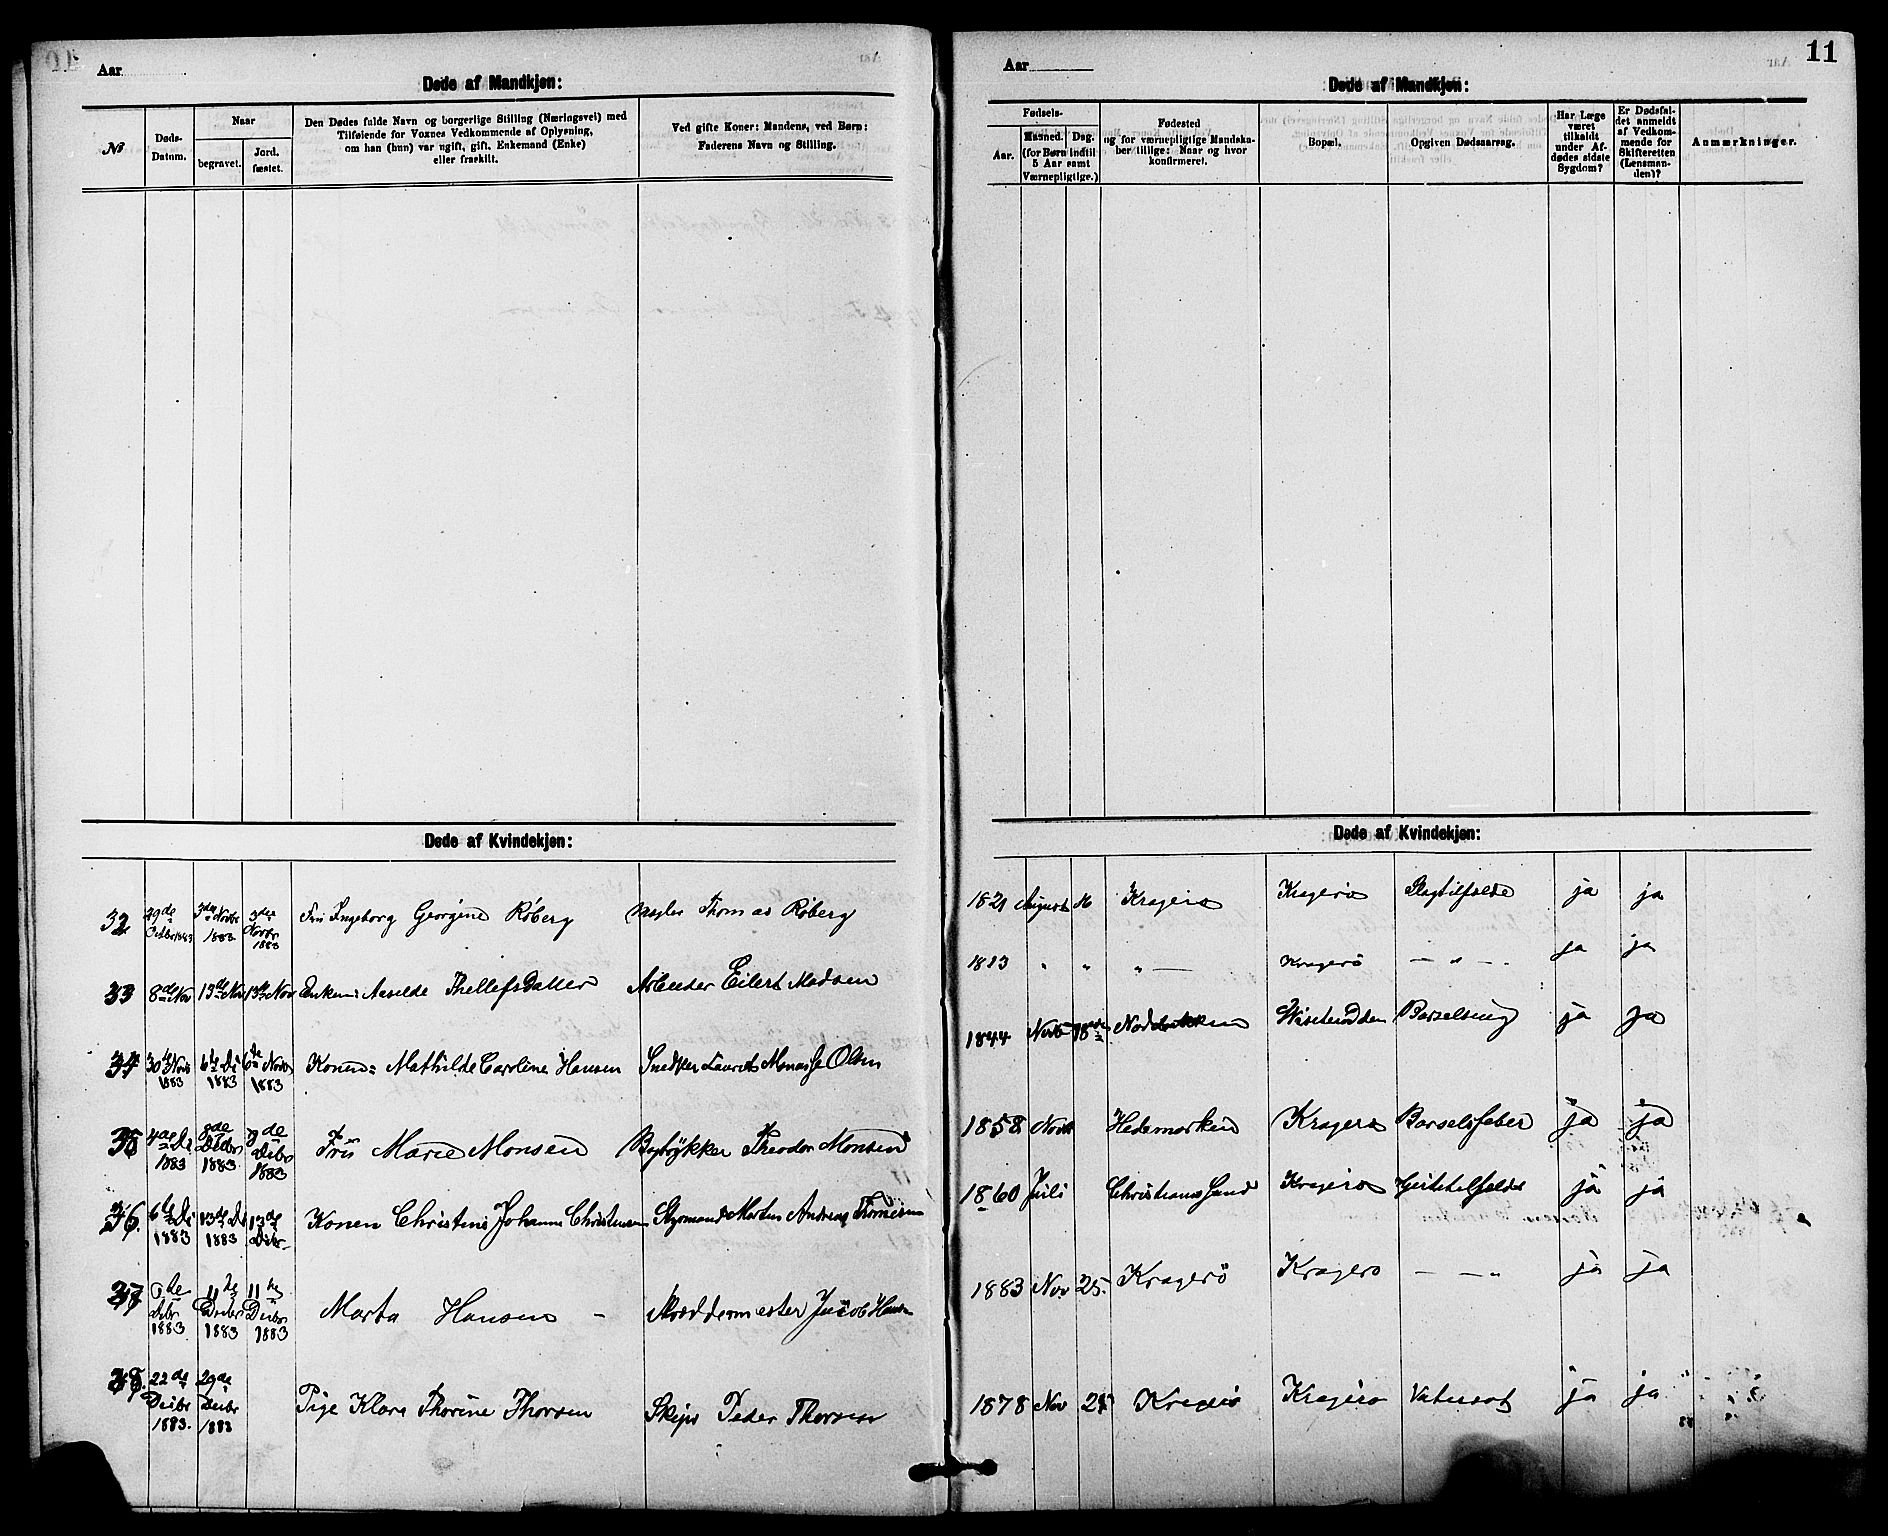 Aar
Døde af Mandkjøn:
№
Døds-
Datum.
Naar
begravet.
Jord-
fæstet.
Den Dødes fulde Navn og borgerlige Stilling (Næringsvei) med
Tilføiende for Voxnes Vedkommende af Oplysning,
om han (hun) var ugift, gift, Enkemand (Enke)
eller fraskilt.
Ved gifte Koner: Mandens, ved Børn:
Faderens Navn og Stilling.
Døde af Kvindekjøn:
32 29de Octbr 1883 3die Novbr 1883 3die Novbr 1883 Fru Ingeborg Georgine Röberg Mægler Thomas Röberg
33 8de Nov 13de Nov 13de Nov Enken: Aaselde Thellefsdatter Arbeider Eilert Madsen
34 30te Novb 1883 6te De 1883 6te Novb 1883 Konen: Mathilde Caroline Hansen Snedker Laurits Olsen
35 4de De 1883 8de Decbr 1883 8de Decbr 1883 Fru Marie Monsen Bogtrykker Theodor Monsen
36. 6te De 1883 13de De 1883 13de Decbr Konen Christine Johanne Christensen Styrmand Morten Andreas
37 6te Decbr 1883 11te Decbr 1883 11te Decbr 1883 Marta Hansen Skræddermester Jacob Hansen
38. 22de Decbr 1883. 29de Decbr 1883 Pige Klara Thorine Thorsen Skips Peder Thorsen
Aar
11
Døde af Mandkjøn:
Fødsels-
Aar.
Maaned. Dag.
(for Børn indtil
5 Aar samt
Værnepligtige.)
Fødested
og for værnepligtige Mandska-
ber tillige: Naar og hvor
konfirmeret.
Bopæl.
Opgiven Dødsaarsag.
Har Læge
været
tilkaldt
under Af-
dødes sidste
Sygdom?
Er Dødsfal-
det anmeldt
af Vedkom-
mende for
Skifteretten
(Lensman-
den)?
Anmærkninger.
Døde af Kvindekjøn:
1821 August 16 Kragerö Kragerö Slagtilfælde ja ja
1813 " " " — Kragerö — " — ja ja
1844 Novb ja ja
1858 Novbr Hedemarken Kragerö Barselfeber ja ja
1860 Juli Christianssand Kragerö ja ja
1883 Nov 25. Kragerö Kragerö — — " ja ja
1878 Nov Kragerö Kragerö Vatersot ja ja